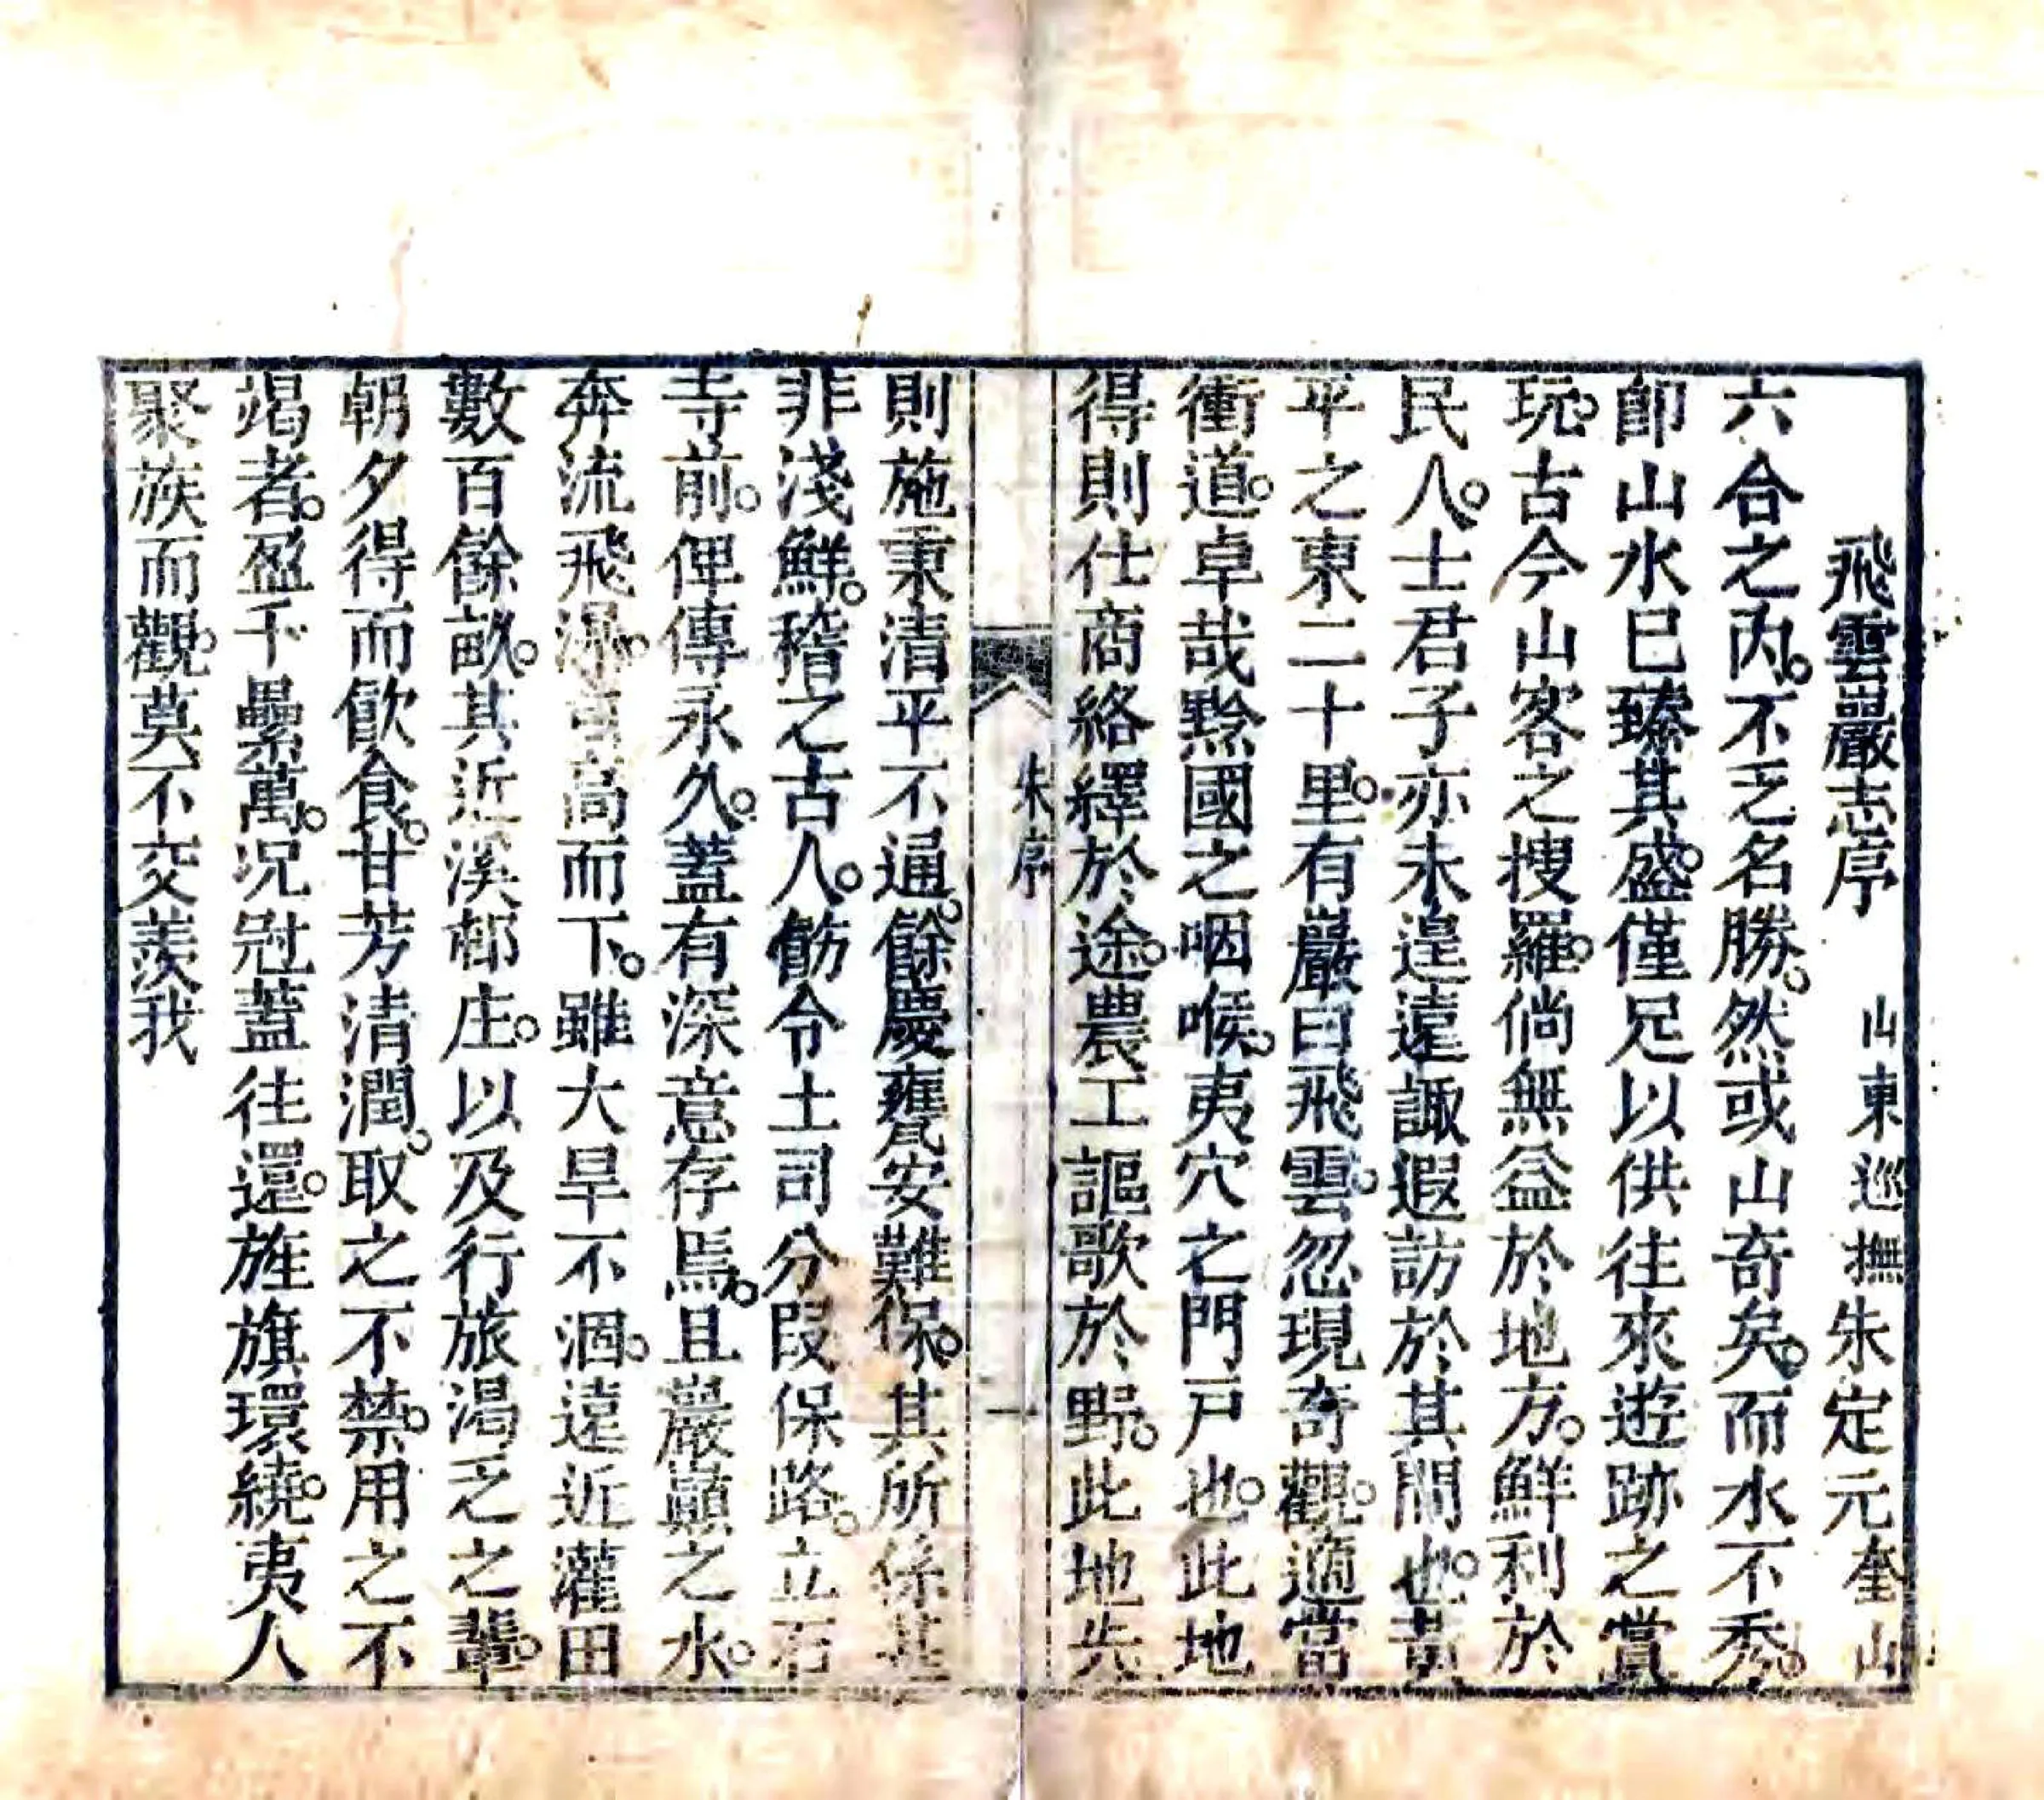 飛雲巖志序　山東巡撫朱定元奎山
六合之內。不乏名勝。然或山奇矣。而水不秀。
卽山水已臻其盛。僅足以供往來遊跡之賞
玩。古今山客之搜羅。倘無益於地方。鮮利於
民人。士君子亦未遑遠諏遐訪於其間也。黃
平之東二十里。有巖曰飛雲。忽現奇觀。適當
衝道。卓哉黔國之咽喉。夷穴之門戶也。此地
得則仕商絡繹於途。農工謳歌於野。此地失
朱序
一
則施秉清平不通。餘慶甕安難保。其所係甚
非淺鮮。稽之古人。飭令土司分段保路。立石
寺前。俾傳永久。蓋有深意存焉。且巖巔之水。
奔流飛瀑。高而下。雖大旱不涸。遠近灌田
數百餘畝。其近溪邨庄。以及行旅渴乏之輩。
朝夕得而飲食。甘芳清潤。取之不禁。用之不
竭者。盈千纍萬。況冠蓋往還。旌旗環繞。夷人
聚族而觀。莫不交羨我